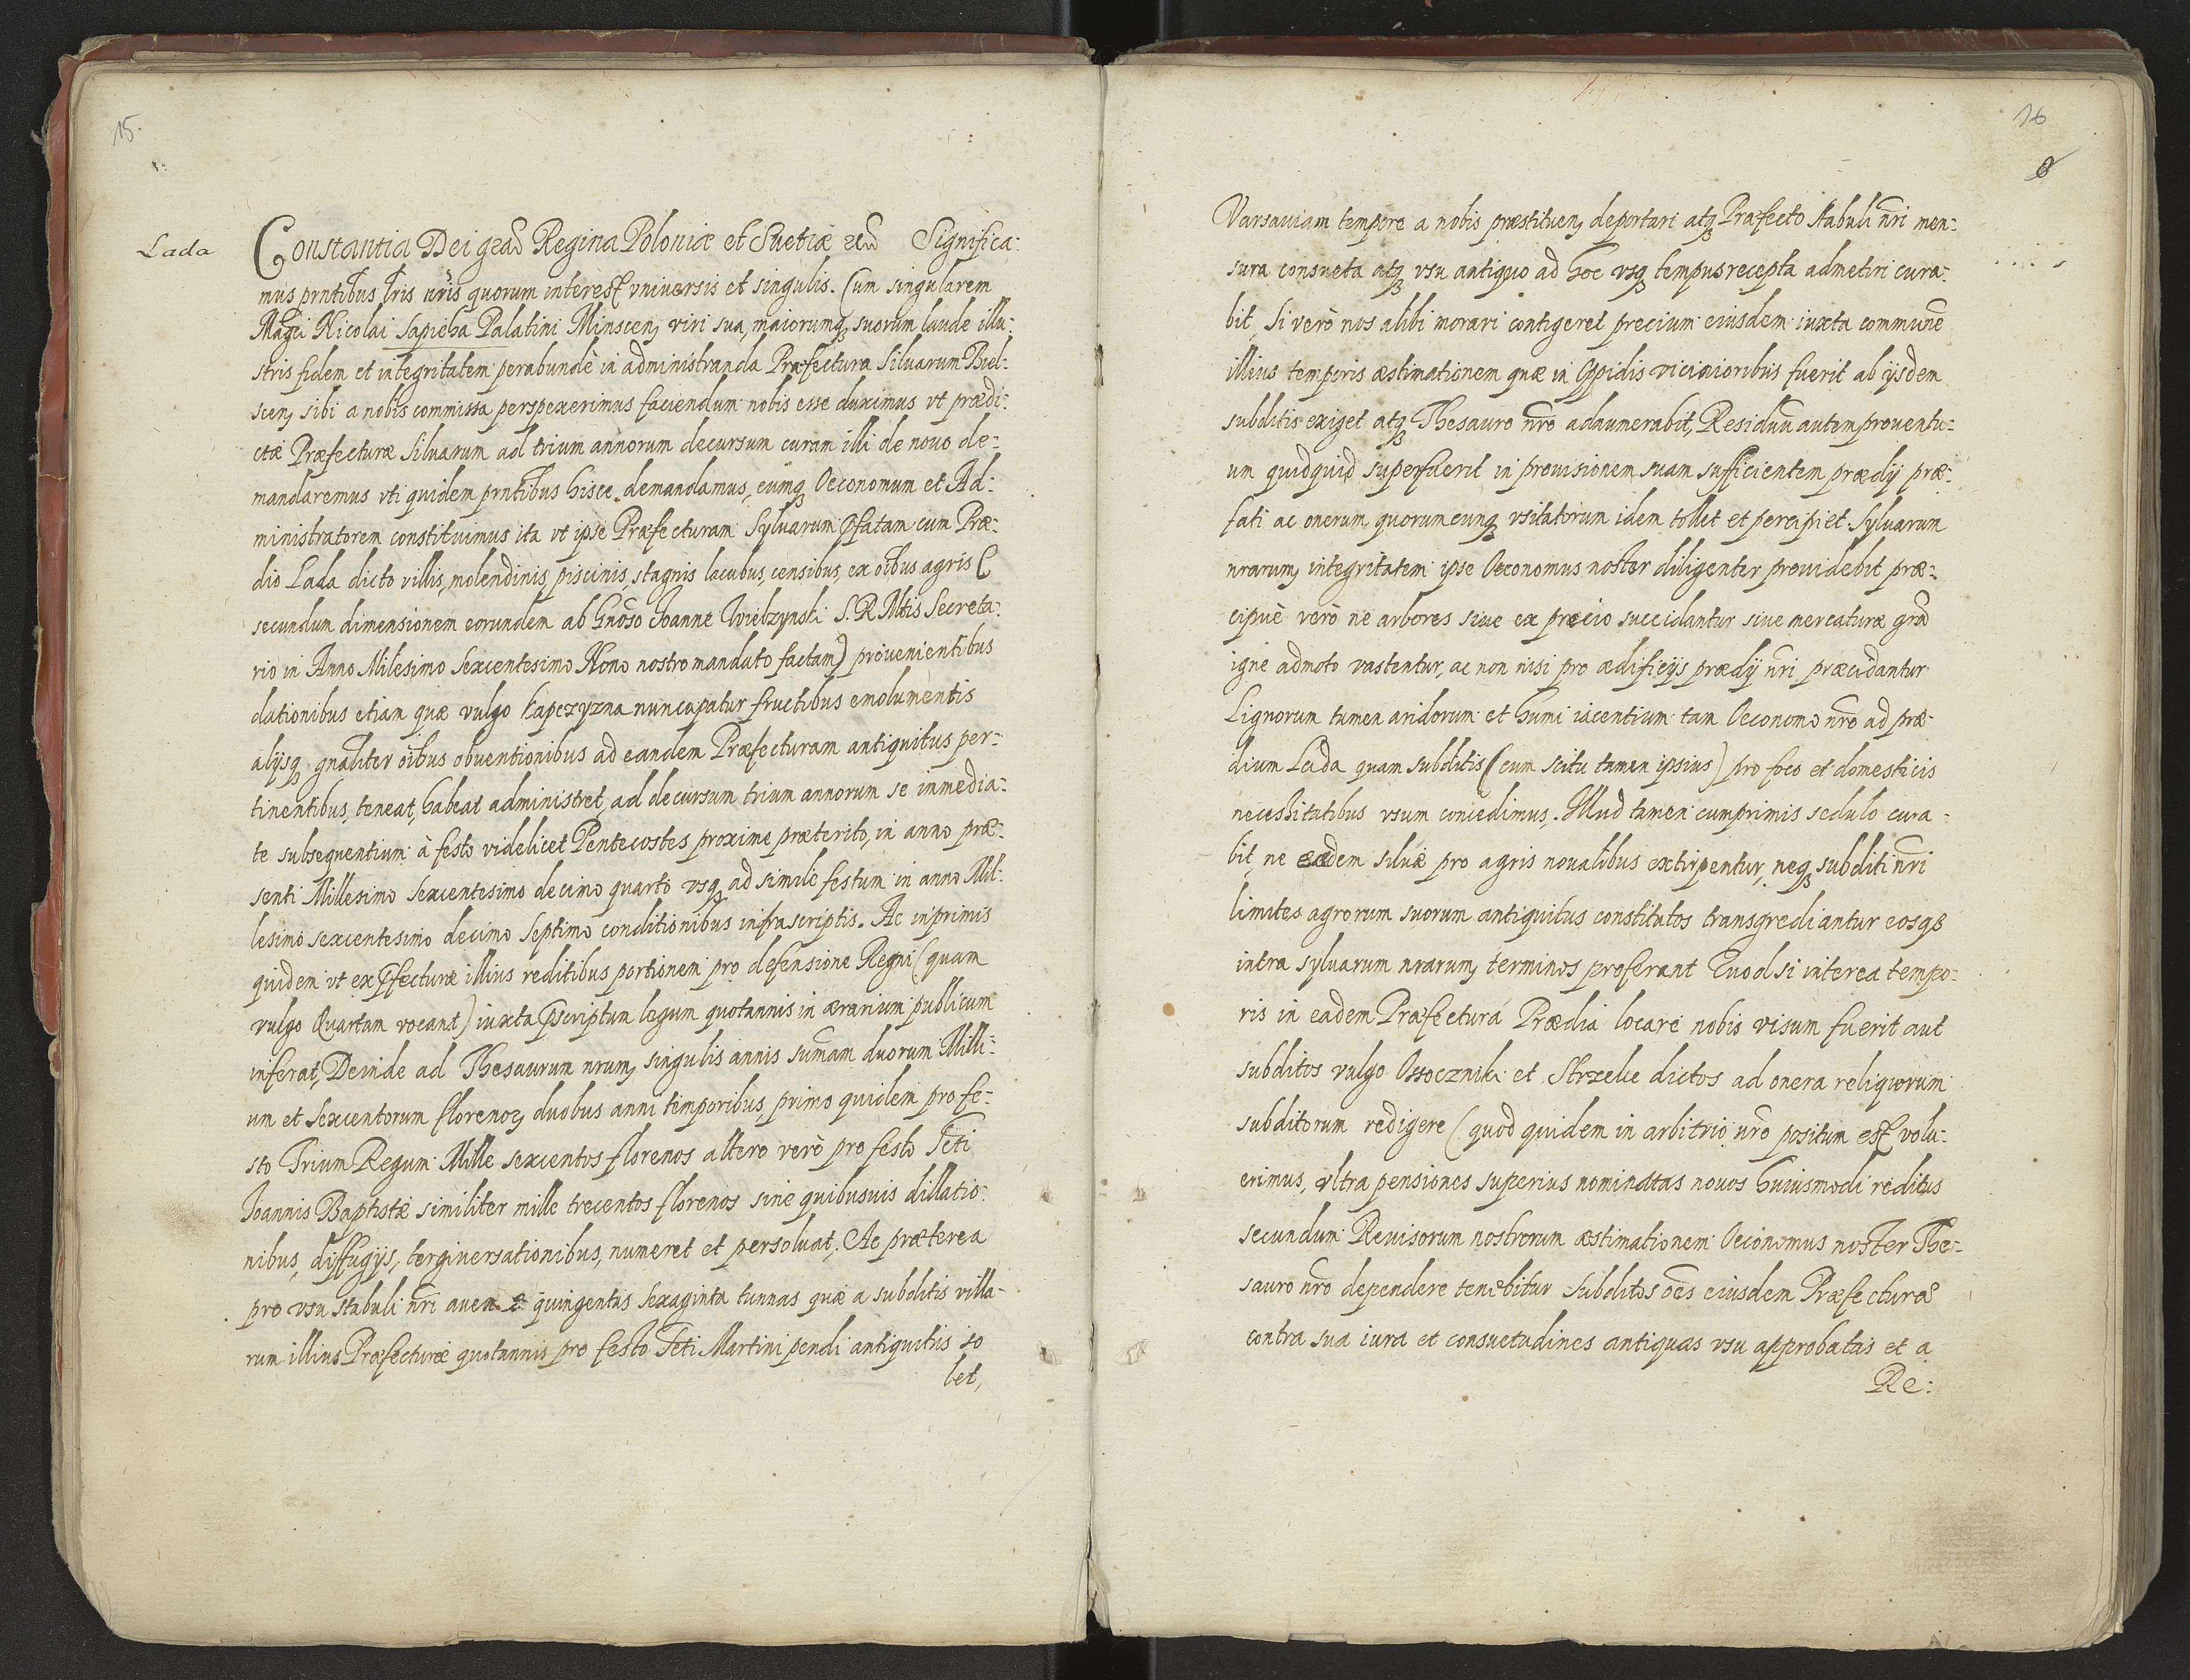 15.
Lada
Constantia Dei gra͞ Regina Poloniæ et Suetiæ etc͞ Significa:
mus prntibus lris nris quorum interest vniuersis et singulis. Cum singularem
Magci Nicolai Sapieha Palatini Minscen, viri sua, maiorumq; suorum laude illu:
stris fidem et integritatem perabundè in administranda Præfectura Siluarum Biel:
scen, sibi a nobis commissa perspexerimus faciendum nobis esse duximus vt prædi:
ctæ Præfecturæ Siluarum ad trium annorum decursum curam illi de nouo de:
mandaremus vti quidem prntibus hisce demandamus, eumq; Oeconomum et Ad:
ministratorem constituimus ita vt ipse Præfecturam Syluarum pfatam cum Præ:
dio Lada dicto villis, molendinis, piscinis, stagnis lacubus, censibus, ex oibus agris (
secundum dimensionem eorundem ab Gnoso Joanne Wielzynski S. R. Mtis Secreta:
rio in Anno Milesimo Sexcentesimo Nono nostro mandato factam) prouenientibus
dationibus etiam quæ vulgo kapczyzna nuncupatur fructibus emolumentis
alijsq; gnaliter oibus obuentionibus ad eandem Præfecturam antiquitus per:
tinentibus, teneat, habeat administret, ad decursum trium annorum se inmedia:
te subsequentium à festo videlicet Pentecostes proxime præterito, in anno præ:
senti Millesimo Sexcentesimo decimo quarto vsq; ad simile festum in anno Mil:
lesimo sexcentesimo decimo Septimo conditionibus infrascriptis. Ac inprimis
quidem vt ex pfecturæ illius reditibus portionem pro defensione Regni (quam
vulgo Quartam vocant) iuxta pscriptum legum quotannis in ærarium publicum
inferat, Deinde ad Thesaurum nrum, singulis annis sumam duorum Milli:
um et Sexcentorum florenor, duobus anni temporibus, primo quidem pro fe:
sto Trium Regum Mille sexcentos florenos altero verò pro festo Scti
Joannis Baptistæ similiter mille trecentos florenos sine quibusuis dillatio:
nibus, diffugijs, tergiuersationibus, numeret et persoluat. Ac præterea
pro vsu stabuli nri auenæ quingentas sexaginta tunnas quæ a subditis villa:
rum illius Præfecturæ quotannis pro festo Scti Martini pendi antiquitus so
let,
16
8
Varsauiam tempore a nobis præstituen, deportari atq; Præfecto stabuli nri men:
sura consueta atq; vsu antiquo ad hoc vsq; tempus recepta admetiri cura:
bit, Si verò nos alibi morari contigeret precium eiusdem iuxta commune
illius temporis æstimationem quæ in Oppidis vicinioribus fuerit ab ijsdem
subditis exiget atq; Thesauro nro adnumerabit, Residuu autem prouentu:
um quidquid superfuerit in prouisionem suam sufficientem prædij præ:
fati ac onerum quorumcunq; vsitatorum idem tollet et percipiet. Syluarum
nrarum, integritatem ipse Oeconomus noster diligenter prouidebit præ:
cipuè verò ne arbores siue ex precio succidantur siue mercaturæ gra͞
igne admoto vastentur, ac non nisi pro ædificijs prædij nri præcidantur
Lignorum tamen aridorum et humi iacentium tam Oeconomo nro ad præ:
dium Lada quam subditis (cum scitu tamen ipsius) pro foco et domesticis
necessitatibus vsum concedimus. Illud tamen cumprimis sedulo cura:
bit, ne eædem siluæ pro agris noualibus extirpentur, neq; subditi nri
limites agrorum suorum antiquitus constitutos transgrediantur eosq;
intra syluarum nrarum, terminos proferant Quod si interea tempo:
ris in eadem Præfectura Prædia locare nobis visum fuerit aut
subditos vulgo Ossocznik: et Strzelce dictos ad onera reliquorum
subditorum redigere (quod quidem in arbitrio nro positum est volu:
erimus, vltra pensiones superius nominatas nouos huiusmodi reditus
secundum Reuisorum nostrorum æstimationem Oeconomus noster The:
sauro nro dependere tenebitur Subditos oes eiusdem Præfecturæ
contra sua iura et consuetudines antiquas vsu approbatas et a
Re: